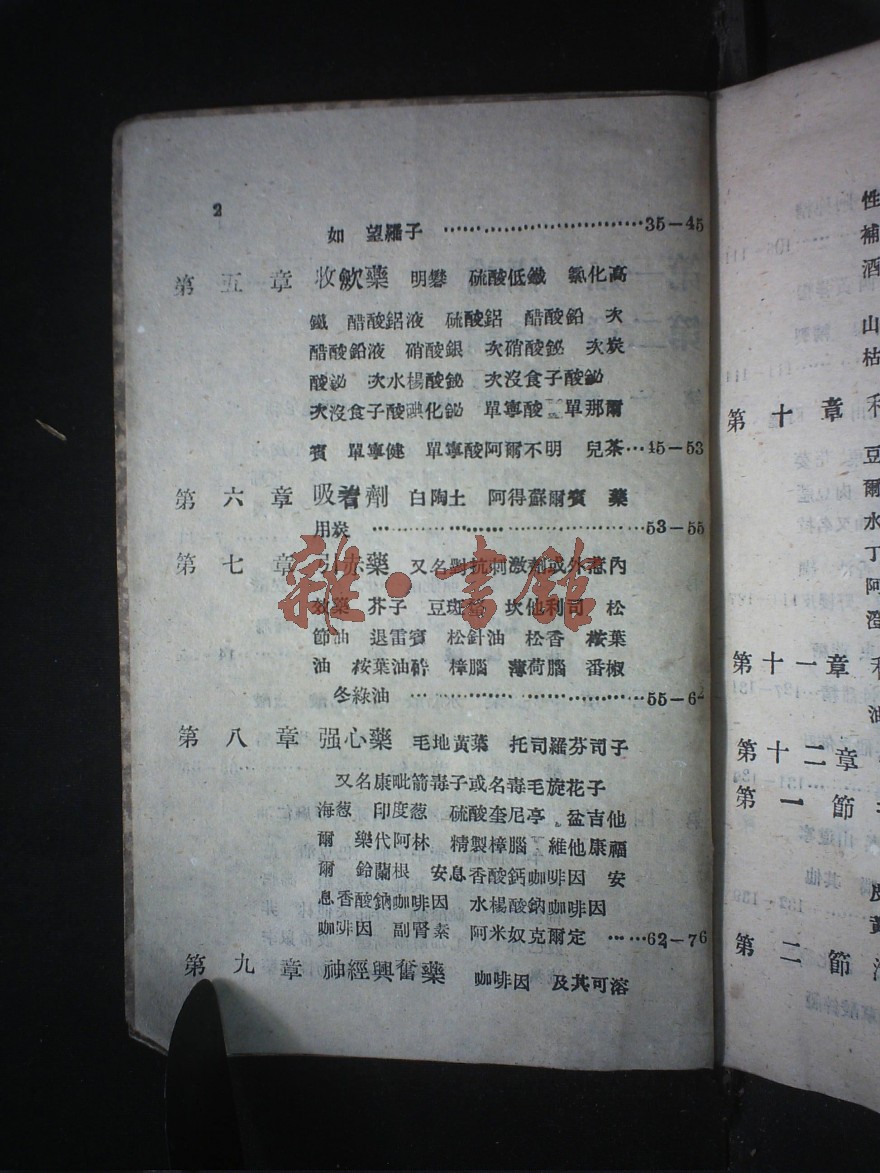 2
如 望羅子 ………………………35—45
第五章 收歛藥 明礬 硫酸低鐵 氯化高
鐵 醋酸鋁液 硫酸鋁 醋酸鉛 次
醋酸鉛液 硝酸銀 次硝酸鉍 次炭
酸鉍 次水楊酸鉍 次沒食子酸鉍
次沒食子酸碘化鉍 單寧酸 單那爾
賓 單寧健 單寧酸阿爾不明 兒茶…45—53
第六章 吸着劑 白陶土 阿得蘇爾賓 藥
用炭 ………………………………53—55
第七章 引赤藥 又名對抗刺激劑或外惹內
效藥 芥子 豆斑蝥 坎他利司 松
節油 退雷賓 松針油 松香 桉葉
油 桉葉油酯 樟腦 薄荷腦 番椒
冬綠油 ………………………55—62
第八章 强心藥 毛地黃葉 托司羅芬司子
又名康毗箭毒子或名毒毛旋花子
海葱 印度葱 硫酸奎尼亭 盆吉他
爾 樂代阿林 精製樟腦 維他康福
爾 鈴蘭根 安息香酸鈣咖啡因 安
息香酸鈉咖啡因 水楊酸鈉咖啡因
咖啡因 副腎素 阿米奴克爾定 ……62—76
第九章 神經興奮藥 咖啡因 及其可溶
性
補
酒
山
枯
第十章 利
豆
爾
水
丁
阿
澄
第十一章 利
油
第十二章
第一節
皮
黃
第二節
雜·書館